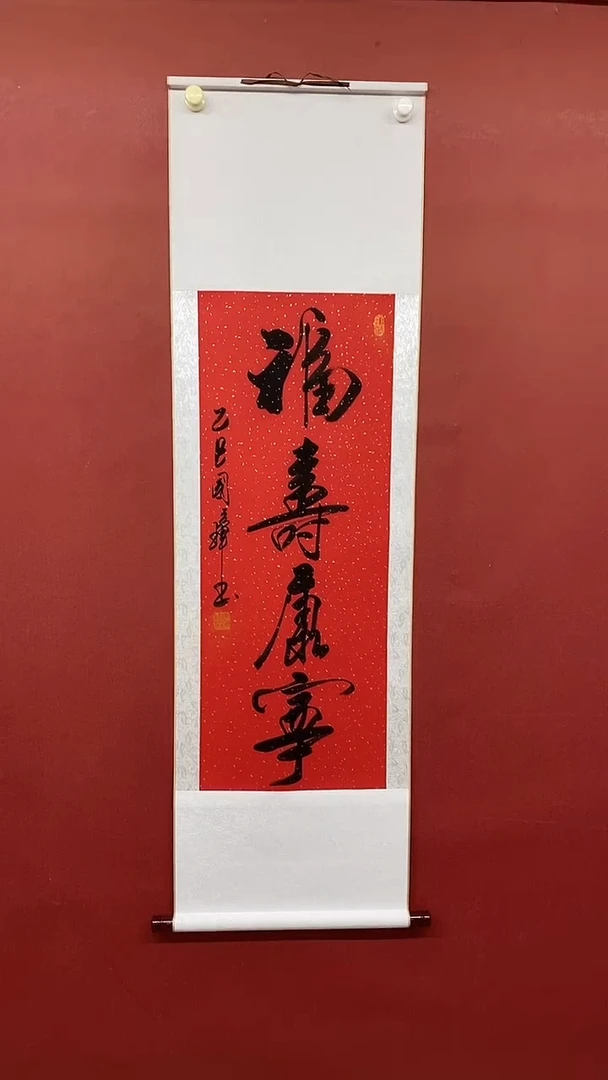 福壽康寧
乙巳國